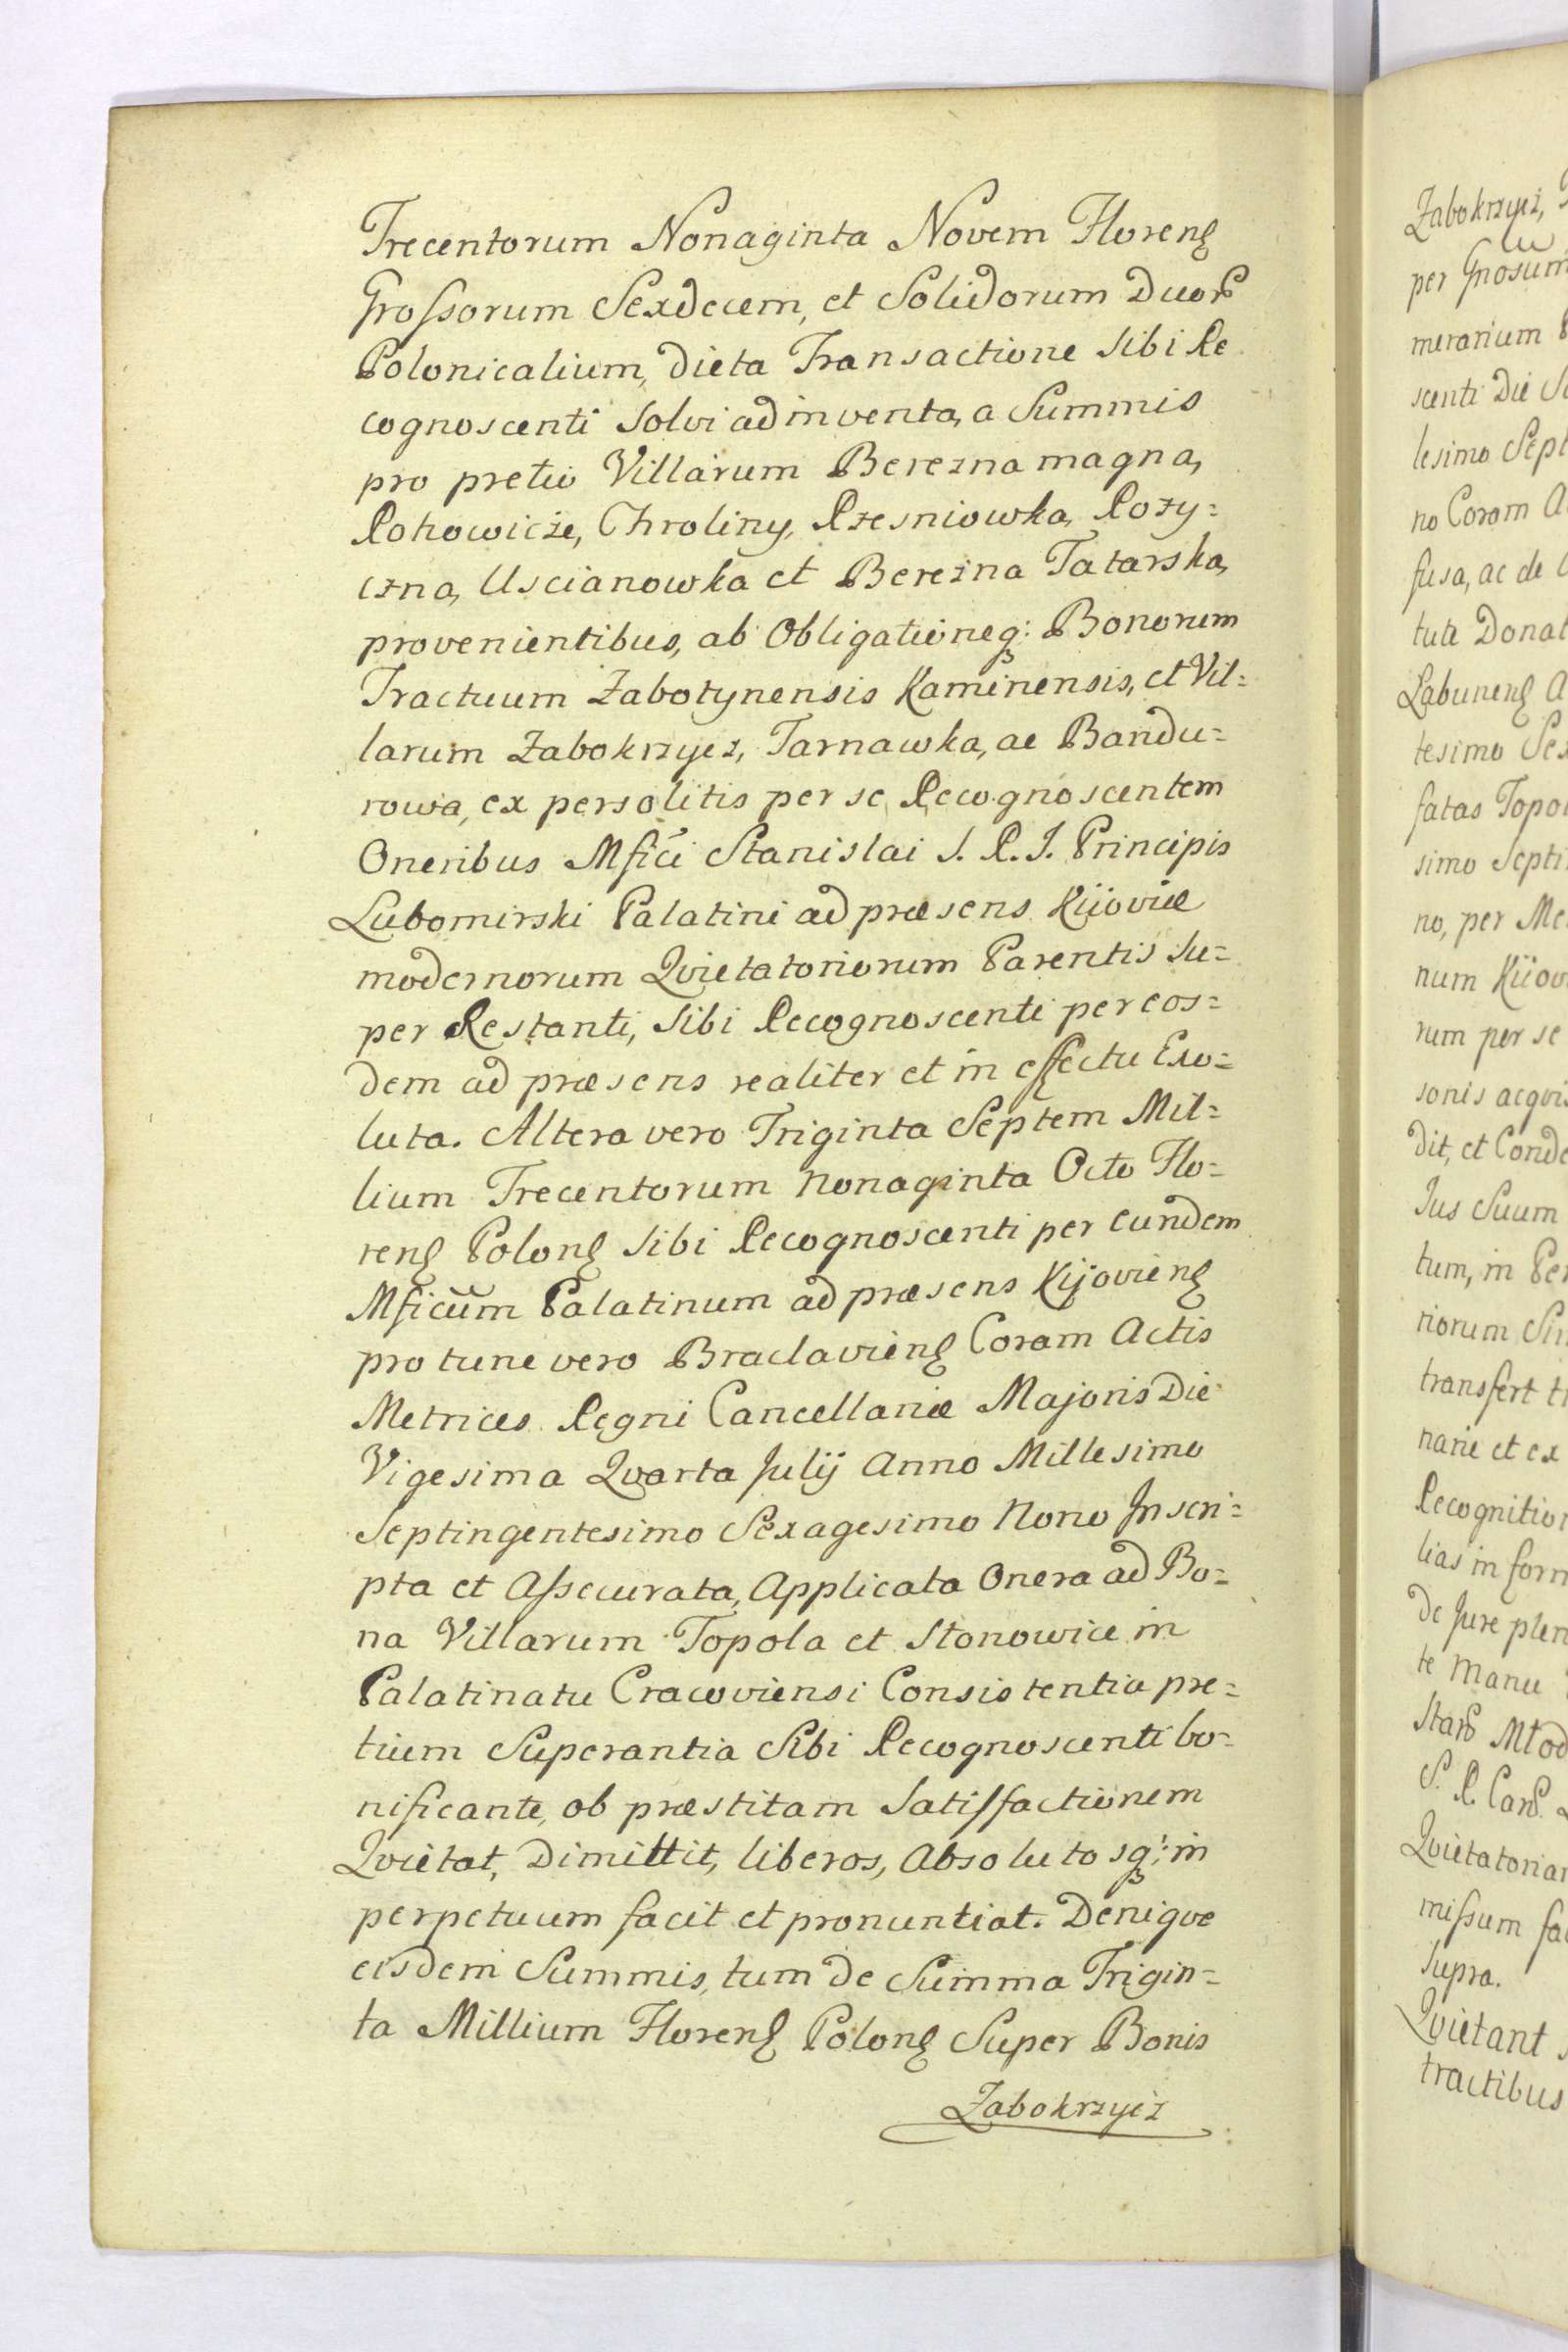 Trecentorum Nonaginta Novem Florenꝭ
Grossorum Sexdecem, et Solidorum Duorꝭ
Polonicalium, dicta Transactione sibi Re
cognoscenti solvi adinventa, a Summis
pro pretio Villarum Berezna magna,
Rohowicze, Chroliny, Rzesniowka, Rozy=
czna, Uscianowka et Berezna Tatarska,
provenientibus, ab Obligationeq: Bonorum
Tractuum Zabotynensis Kaminensis, et Vil=
larum Zabokrzycz, Tarnawka, ac Bandu=
rowa, ex persolitis per se Recognoscentem
Oneribus Mfici Stanislai S. R. I. Principis
Lubomirski Palatini ad præsens Kijoviæ
modernorum Qvietatoriorum Parentis su=
per Restanti, sibi Recognoscenti per eos=
dem ad præsens realiter et in effectu Exo=
luta. Altera vero Triginta Septem Mil=
lium Trecentorum Nonaginta Octo Flo=
renꝭ Polonꝭ sibi Recognoscenti per eundem
Mficum Palatinum ad præsens Kijovienꝭ
pro tunc vero Braclavienꝭ Coram Actis
Metrices Regni Cancellariæ Majoris Die
Vigesima Qvarta Julij Anno Millesimo
Septingentesimo Sexagesimo Nono Inscri=
pta et Assecurata, Applicata Onera ad Bo=
na Villarum Topola et Stonowice in
Palatinatu Cracoviensi Consistentia pre=
tium Superantia Sibi Recognoscenti bo=
nificante, ob præstitam Satisfactionem
Qvietat, Dimittit, liberos, Absolutosq: in
perpetuum facit et pronuntiat. Deniqve
eisdem Summis, tum de Summa Trigin=
ta Millium Florenꝭ Polonꝭ Super Bonis
Zabokrzycz
Zabokrzycz,
per Gnosum
merarium
scenti Die
lesimo Sept
no Coram A
fusa, ac de
tute Donat
Labunenꝭ A
tesimo Sex
fatas Topol
simo Septi
no, per
num Kijov
rum per se
sonis acqvis
dit, et Conde
Jus Suum
tum, in Per
riorum
transfert
narie et ex
Recognition
lias in form
de Jure plen
te Manu
Starꝭ Młod
S. R. Canꝭ
Qvietatorian
missum fac
Supra.
Qvietant
tractibus